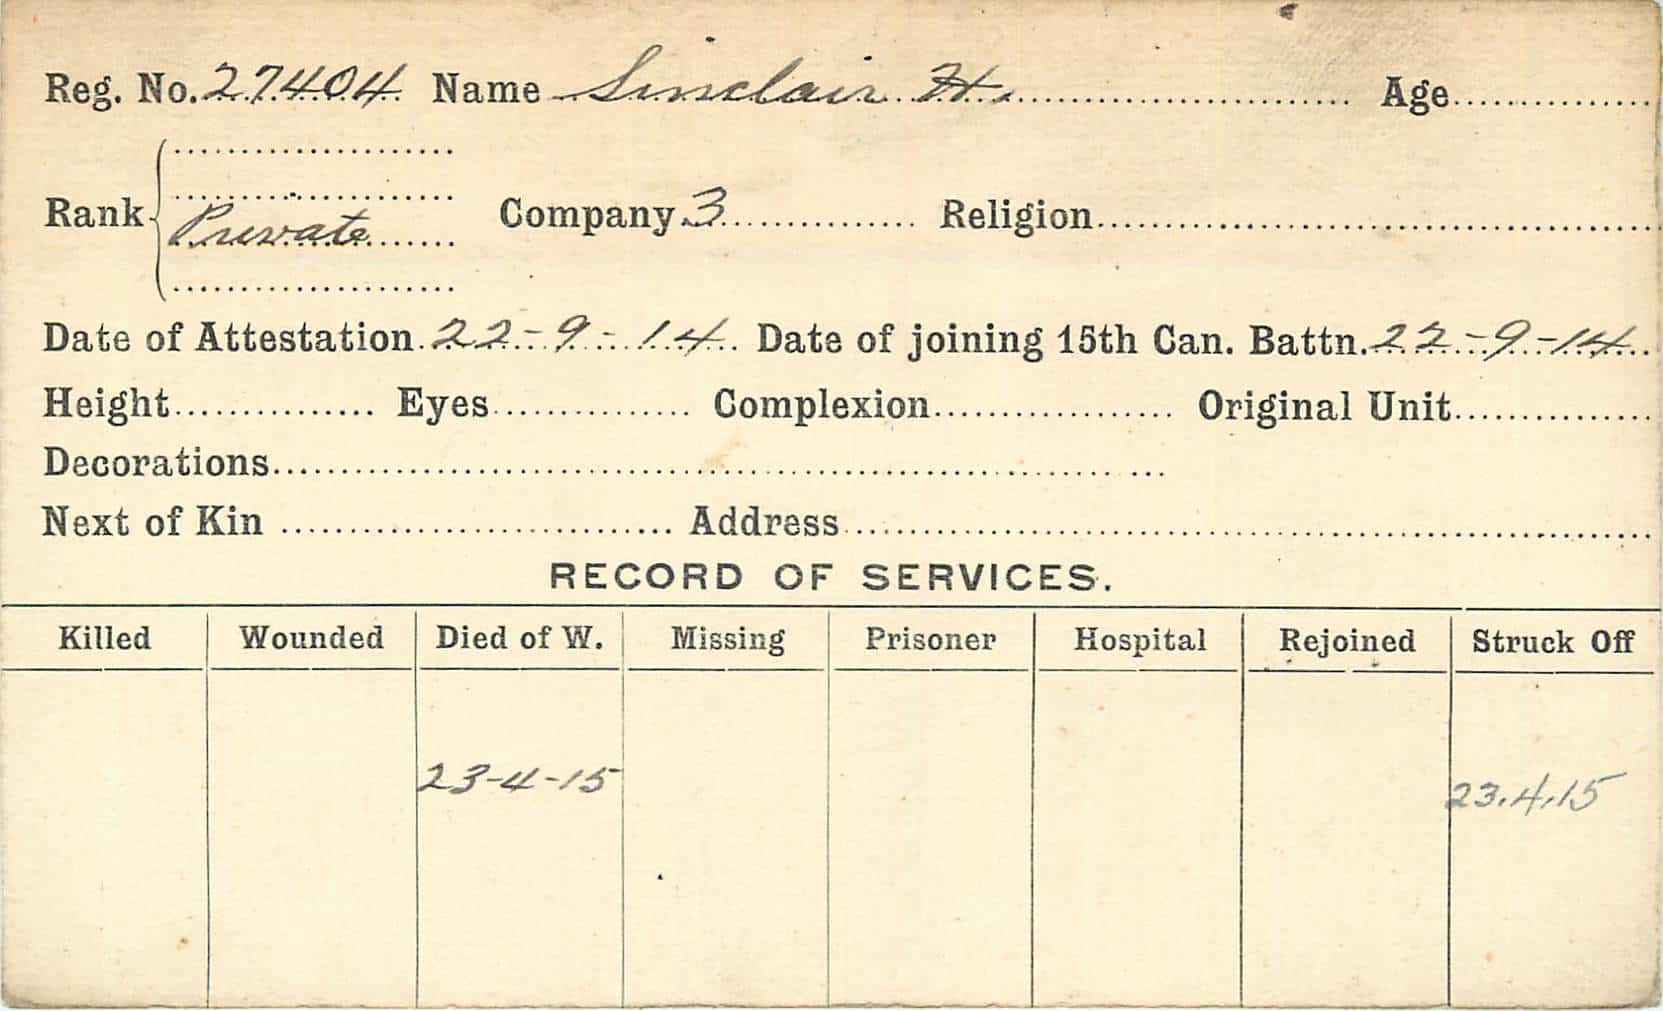 Reg. No. 27404 Name Sinclair H. Age
Rank Private Company 3 Religion
Date of Attestation 22-9-14 Date of joining 15th Can. Battn. 22-9-14
Height Eyes Complexion Original Unit
Decorations
Next of Kin Address
RECORD OF SERVICES.
Killed Wounded Died of W. Missing Prisoner Hospital Rejoined Struck Off
23-4-15 23.4.15